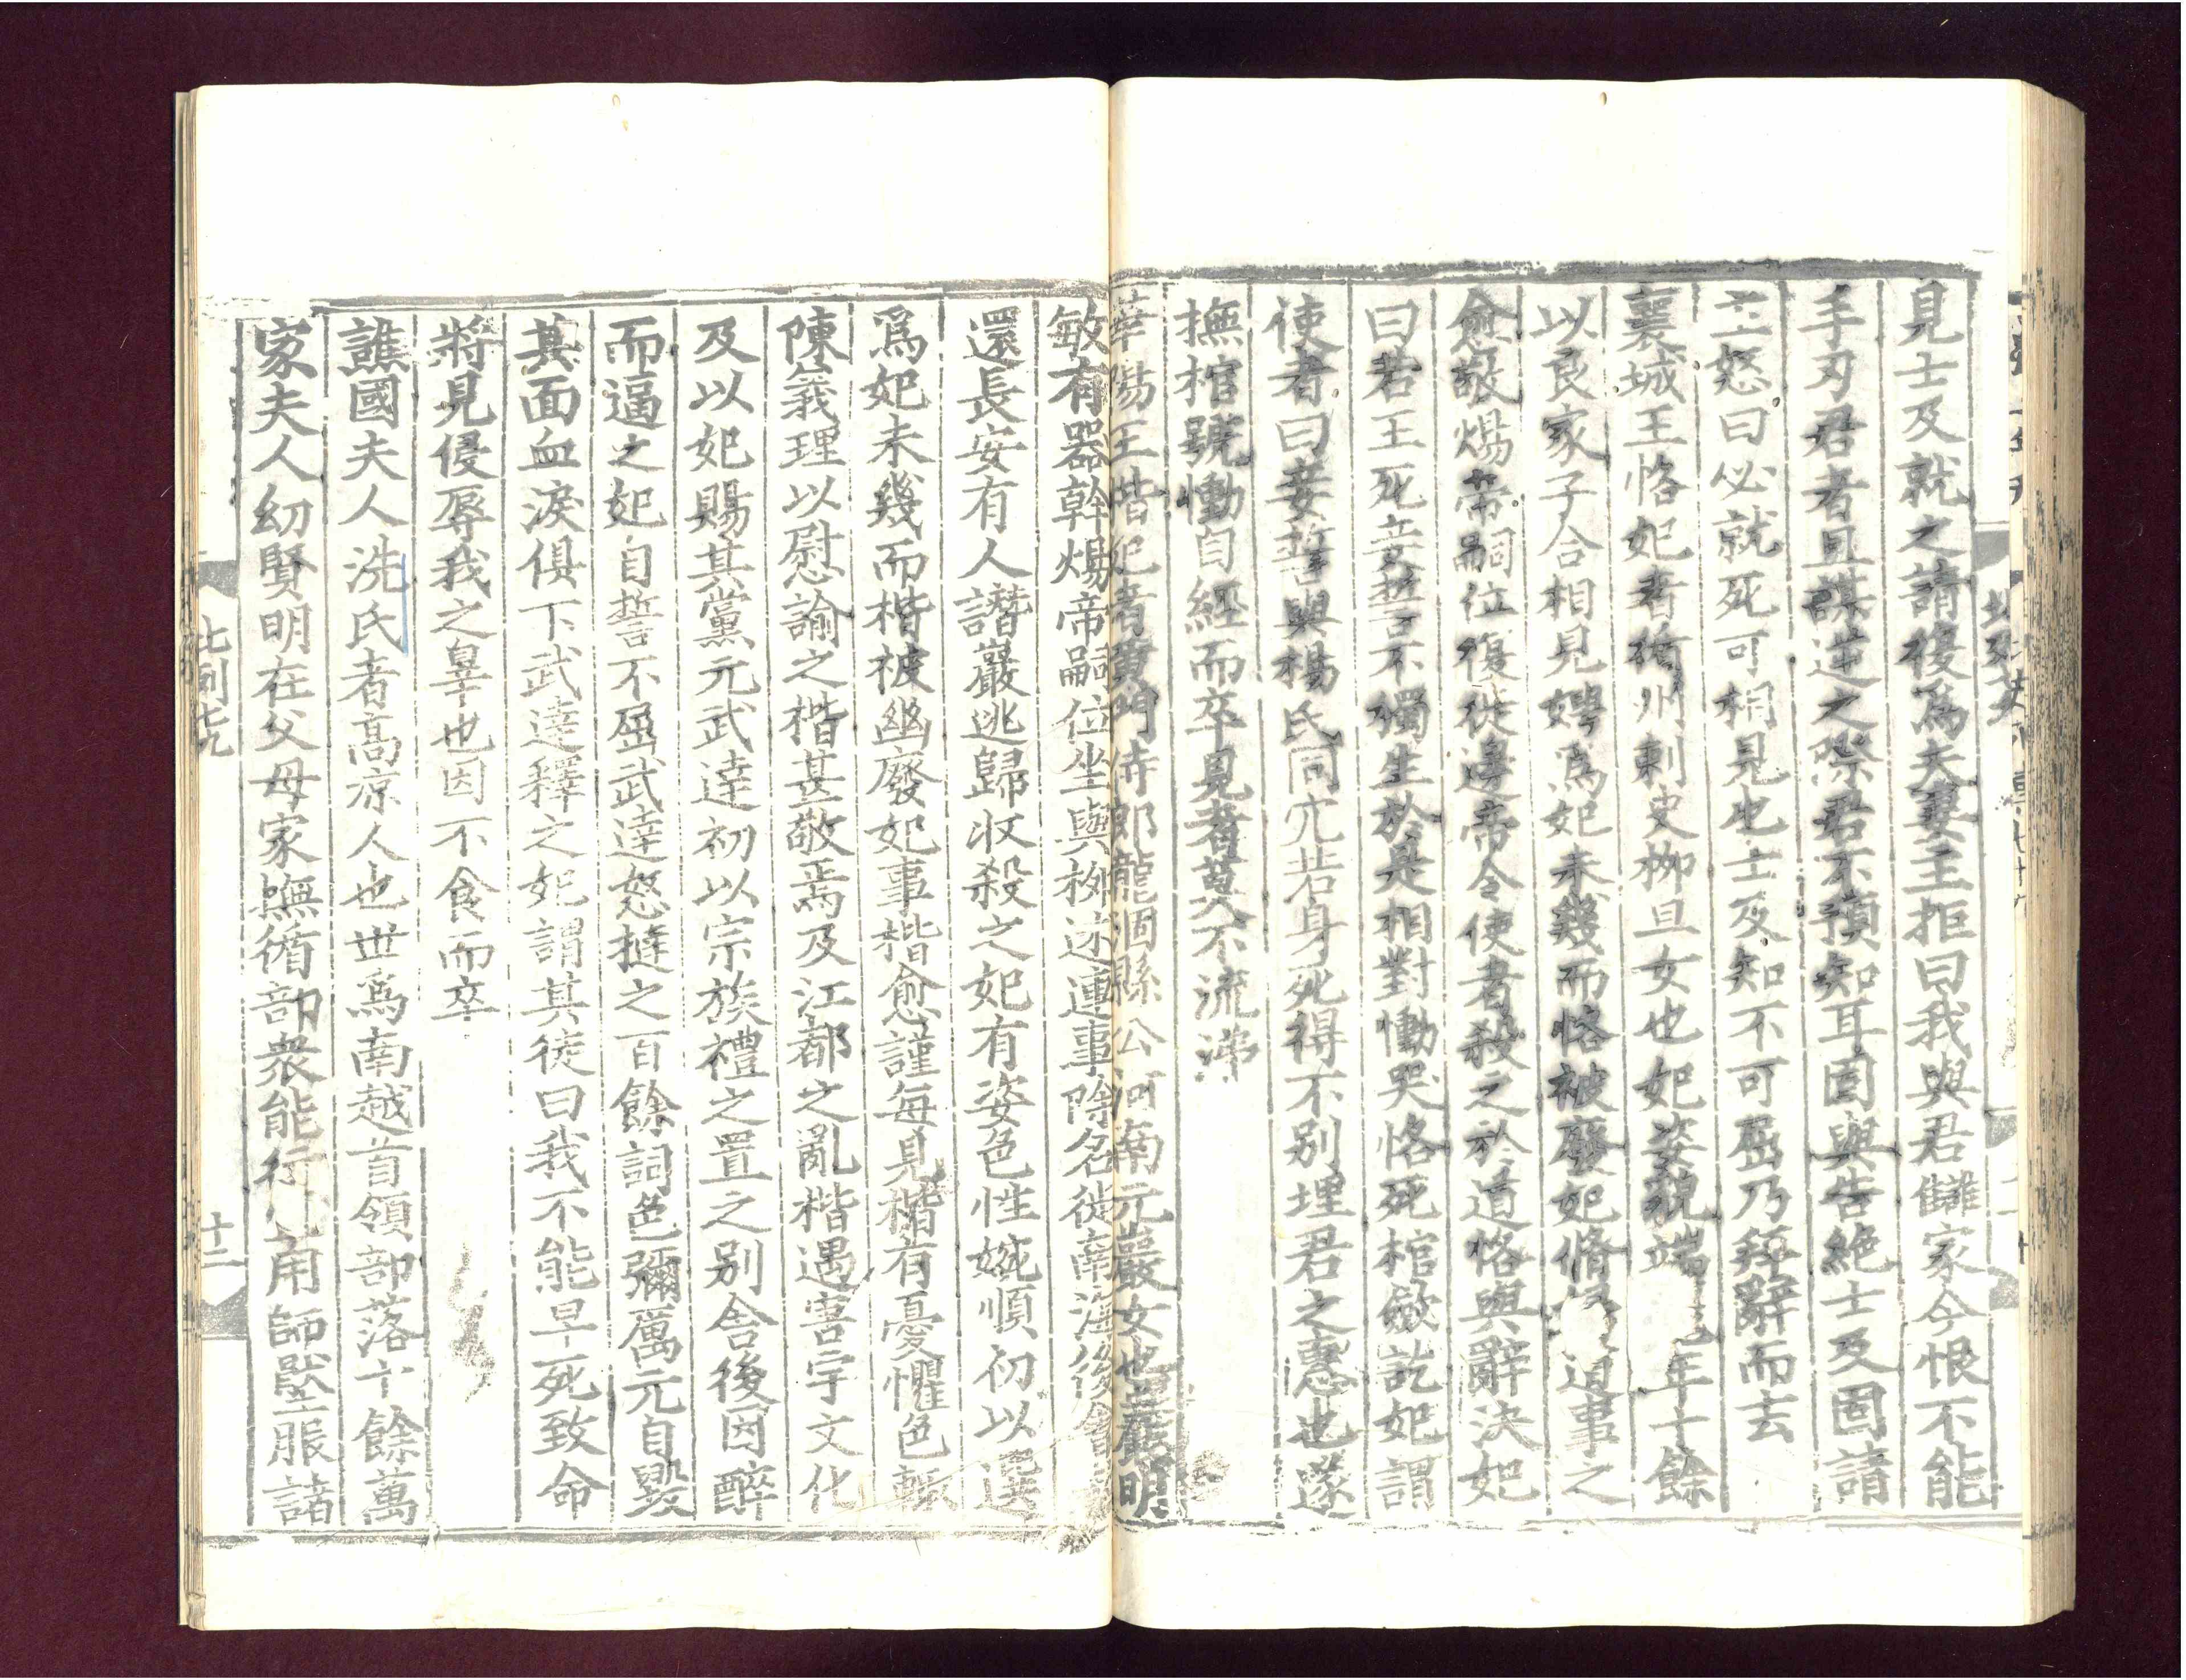 見士及就之請復爲夫妻主拒曰我與君讎家今恨不能
手刃君者且謀逆之際君不預知耳因與告絕士及固請
主怒曰必就死可相見也士及知不可屈乃拜辭而去
襄城王恪妃者循州刺史柳旦女也妃姿貌端年十餘
以良家子合相見娉爲妃未幾而恪被廢妃脩道事之
愈敬煬帝嗣位復徙邊帝令使者殺之於道恪與辭決妃
曰若王死妾誓不獨生於是相對慟哭恪死棺斂訖妃謂
使者曰妾誓與楊氏同穴若身死得不别埋君之惠也遂
撫棺號慟自經而卒見者莫不流涕
華陽王楷妃者黄門侍郎龍涸縣公河南元巖女也巖明
敏有器幹煬帝嗣位坐與柳述連事除名徙南海後會
還長安有人譖巖逃歸収殺之妃有姿色性婉順初以選
爲妃未幾而楷被幽廢妃事楷愈謹每見楷有憂懼色輒
陳義理以慰諭之楷甚敬焉及江都之亂楷遇害宇文化
及以妃賜其黨元武逹初以宗族禮之置之别舍後因醉
而逼之妃自誓不屈武逹怒撻之百餘詞色彌厲元自毀
其面血淚俱下武逹釋之妃謂其徒曰我不能早死致命
將見侵辱我之辠也因不食而卒
譙國夫人洗氏者高凉人也世爲南越首領部落十餘萬
家夫人幼賢明在父母家撫循部衆能行用師壓服諸
北列七九
十二